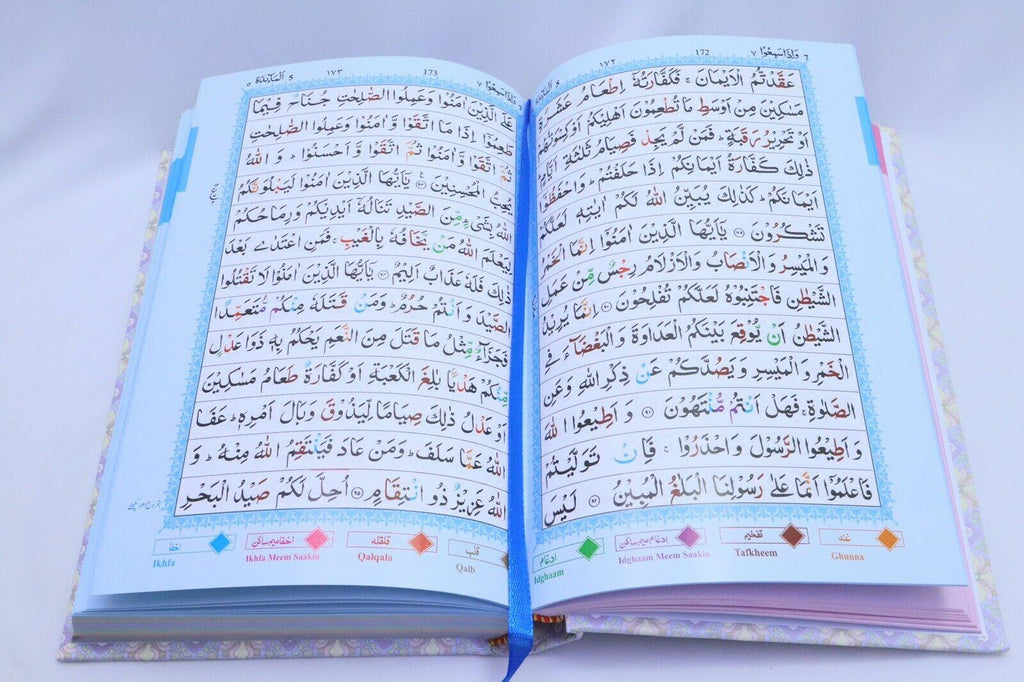 7 وَاِذَاسَمِعُوْا ٧ 172 ١٧٢
عَقَّدْتُّمُ الْاَيْمَانَ ۚ فَكَفَّارَتُهٗۤ اِطْعَامُ عَشَرَةِ
مَسٰكِيْنَ مِنْ اَوْسَطِ مَا تُطْعِمُوْنَ اَهْلِيْكُمْ اَوْ كِسْوَتُهُمْ
اَوْ تَحْرِيْرُ رَقَبَةٍ ؕ فَمَنْ لَّمْ يَجِدْ فَصِيَامُ ثَلٰثَةِ اَيَّامٍ ؕ
ذٰلِكَ كَفَّارَةُ اَيْمَانِكُمْ اِذَا حَلَفْتُمْ ؕ وَاحْفَظُوْۤا
اَيْمَانَكُمْ ؕ كَذٰلِكَ يُبَيِّنُ اللّٰهُ لَكُمْ اٰيٰتِهٖ لَعَلَّكُمْ
تَشْكُرُوْنَ ۸۹ يٰۤاَيُّهَا الَّذِيْنَ اٰمَنُوْۤا اِنَّمَا الْخَمْرُ
وَالْمَيْسِرُ وَالْاَنْصَابُ وَالْاَزْلَامُ رِجْسٌ مِّنْ عَمَلِ
الشَّيْطٰنِ فَاجْتَنِبُوْهُ لَعَلَّكُمْ تُفْلِحُوْنَ ۹۰ اِنَّمَا يُرِيْدُ
الشَّيْطٰنُ اَنْ يُّوْقِعَ بَيْنَكُمُ الْعَدَاوَةَ وَالْبَغْضَآءَ فِى
الْخَمْرِ وَالْمَيْسِرِ وَيَصُدَّكُمْ عَنْ ذِكْرِ اللّٰهِ وَعَنِ
الصَّلٰوةِ ۚ فَهَلْ اَنْتُمْ مُّنْتَهُوْنَ ۹۱ وَاَطِيْعُوا اللّٰهَ
وَاَطِيْعُوا الرَّسُوْلَ وَاحْذَرُوْا ۚ فَاِنْ تَوَلَّيْتُمْ
فَاعْلَمُوْۤا اَنَّمَا عَلٰى رَسُوْلِنَا الْبَلٰغُ الْمُبِيْنُ ۹۲ لَيْسَ
غنه Ghunna
تفخيم Tafkheem
ادغام ميم ساكن Idghaam Meem Saakin
ادغام Idghaam
وَاِذَاسَمِعُوْا ٧ 173 ١٧٣ اَلْمَآئِدَة ٥ 5
عَلَى الَّذِيْنَ اٰمَنُوْا وَعَمِلُوا الصّٰلِحٰتِ جُنَاحٌ فِيْمَا
طَعِمُوْۤا اِذَا مَا اتَّقَوْا وَّاٰمَنُوْا وَعَمِلُوا الصّٰلِحٰتِ
ثُمَّ اتَّقَوْا وَّاٰمَنُوْا ثُمَّ اتَّقَوْا وَّاَحْسَنُوْا ؕ وَاللّٰهُ
يُحِبُّ الْمُحْسِنِيْنَ ۹۳ يٰۤاَيُّهَا الَّذِيْنَ اٰمَنُوْا لَيَبْلُوَنَّكُمُ
اللّٰهُ بِشَىْءٍ مِّنَ الصَّيْدِ تَنَالُهٗۤ اَيْدِيْكُمْ وَرِمَاحُكُمْ
لِيَعْلَمَ اللّٰهُ مَنْ يَّخَافُهٗ بِالْغَيْبِ ۚ فَمَنِ اعْتَدٰى بَعْدَ
ذٰلِكَ فَلَهٗ عَذَابٌ اَلِيْمٌ ۹۴ يٰۤاَيُّهَا الَّذِيْنَ اٰمَنُوْا لَا تَقْتُلُوا
الصَّيْدَ وَاَنْتُمْ حُرُمٌ ؕ وَمَنْ قَتَلَهٗ مِنْكُمْ مُّتَعَمِّدًا
فَجَزَآءٌ مِّثْلُ مَا قَتَلَ مِنَ النَّعَمِ يَحْكُمُ بِهٖ ذَوَا عَدْلٍ
مِّنْكُمْ هَدْيًۢا بٰلِغَ الْكَعْبَةِ اَوْ كَفَّارَةٌ طَعَامُ مَسٰكِيْنَ
اَوْ عَدْلُ ذٰلِكَ صِيَامًا لِّيَذُوْقَ وَبَالَ اَمْرِهٖ ؕ عَفَا
اللّٰهُ عَمَّا سَلَفَ ؕ وَمَنْ عَادَ فَيَنْتَقِمُ اللّٰهُ مِنْهُ ؕ وَ
اللّٰهُ عَزِيْزٌ ذُو انْتِقَامٍ ۹۵ اُحِلَّ لَكُمْ صَيْدُ الْبَحْرِ
قلب Qalb
قلقله Qalqala
اخفا ميم ساكن Ikhfa Meem Saakin
اخفا Ikhfa